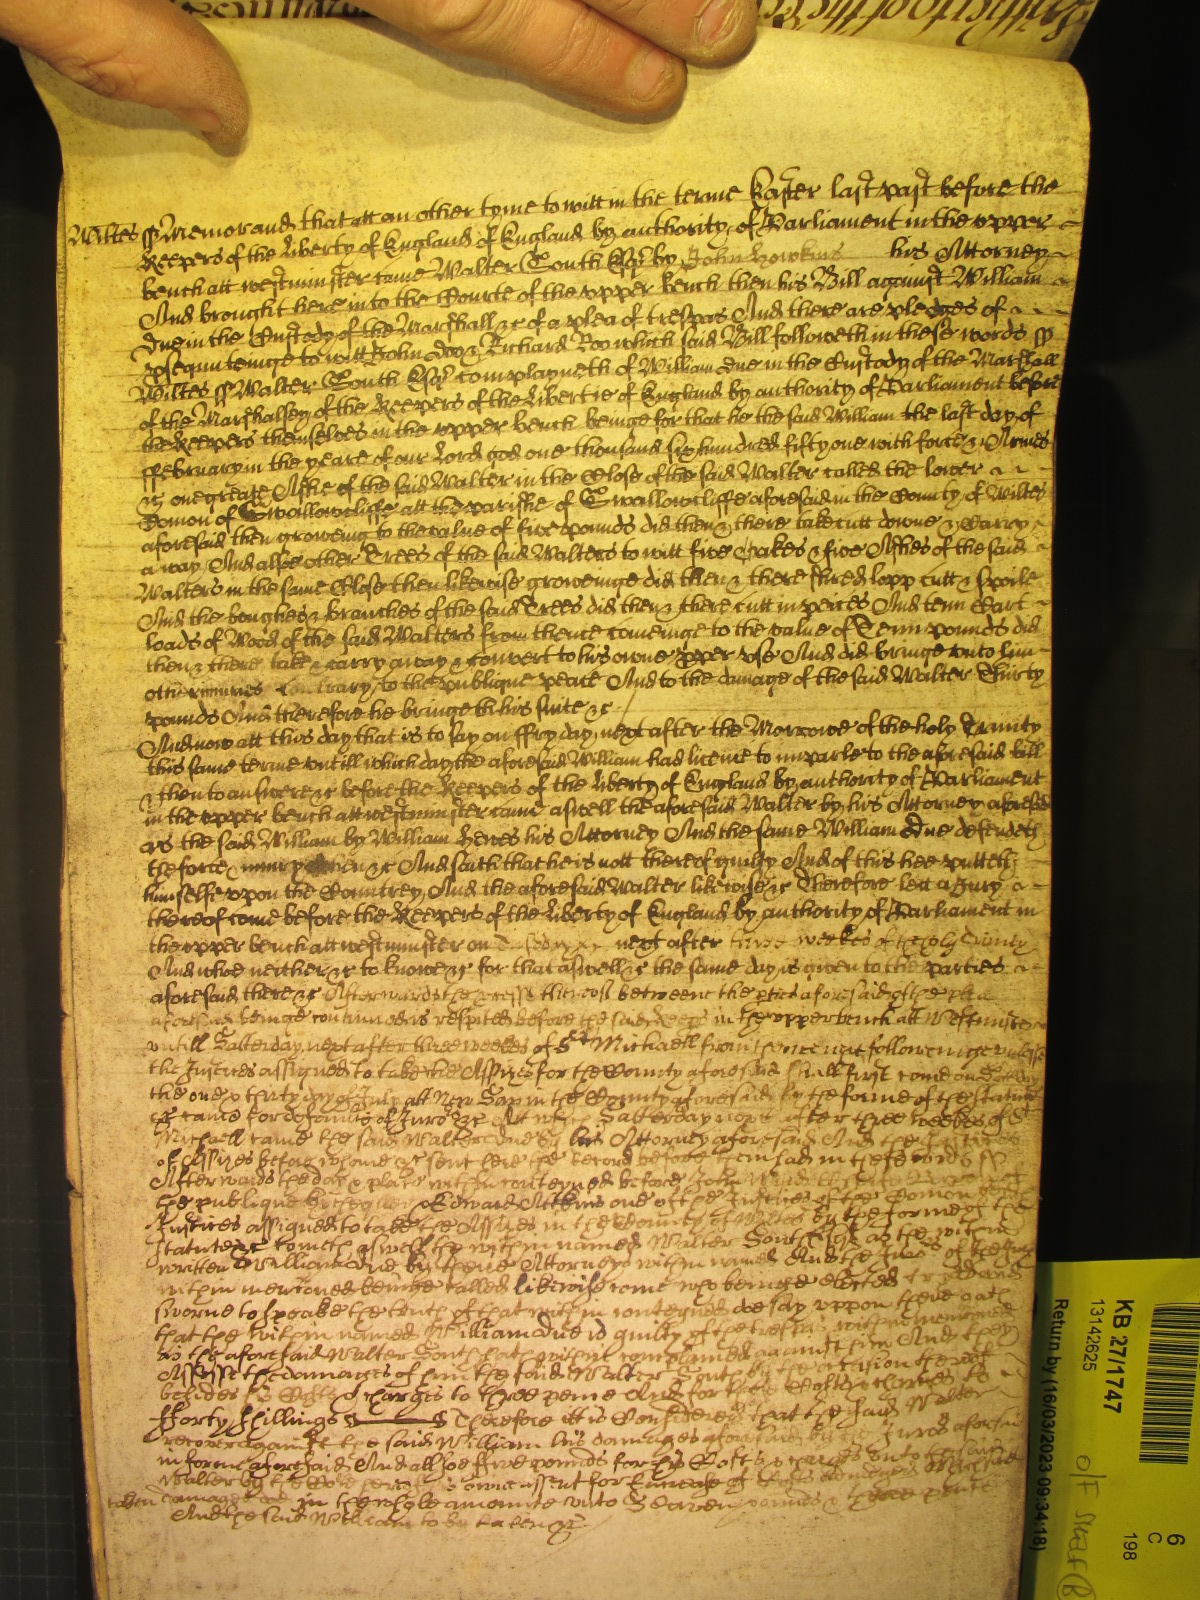 Wiltes ss Memorand that att an other tyme to witt in the terme Easter last past before the
Keepers of the liberty of England of England by authority of Parliament in the upper
bench att westminster came Walter South Esqr by John Howkins his Attorney
And brought here into the Courte of the upper bench then his Bill against William
Due in the Custody of the Marshall &c of a plea of trespas And there are pledges of
prosequuteinge to witt John Doo & Richard Roo which said Bill followeth in these words ss
Wiltes ss Walter South Esqr complayneth of William Due in the Custody of the Marshall
of the Marshalsey of the Keepers of the libertie of England by authority of Parliament before
the Keepers themselves in the upper bench beinge for that he the said William the last day of
ffebruary in the yeare of our lord god one thousand six hundred fifty one with force & Armes
&c one greate Ashe of the said Walter in the Close of the said Walter called the lower
Comon of Swallowcliffe att the parishe of Swallowcliffe aforesaid in the County of Wiltes
aforesaid then groweing to the value of five pounds did then & there take cutt downe & Carry
a way And alsoe other Trees of the said Walters to witt five Oakes & five Ashes of the said
Walters in the same Close then likewise groweinge did then & there shred lopp cutt & spoile
And the boughes & branches of the said Trees did then & there cutt in peeces And tenn Cart
loads of Wood of the said Walters from thence comeinge to the value of Tenn pounds did
then & there take & carry away & convert to his owne pper use And did bringe unto him
other iniuries Contrary to the publique peace And to the damage of the said Walter Thirty
pounds And therefore he bringeth his suite &c
And now att this day that is to say on ffryday next after the Morrowe of the holy Trinity
this same terme untill which day the aforesaid William had licence to imparle to the aforesaid bill
& then to answere &c before the Keepers of the liberty of England by authority of Parliament
in the upper bench att westminster came aswell the aforesaid Walter by his Attorney aforesd
as the said William by William Yeres his Attorney And the same William Due defendeth
the force & iniury when &c And saith that he is nott thereof guilty And of this hee putteth
himselfe uppon the Countrey And the aforesaid Walter likewise &c Therefore lett a Jury
thereof come before the Keepers of the liberty of England by authority of Parliament in
the upper bench att westminster on next after three weekes of the holy Trinity
And whoe neither &c to knowe &c for that aswell &c the same day is given to the parties
aforesaid there &c Afterwards the processe thereof betweene the pties aforesaid of the plea
aforesaid beinge continued is respited before the said Keeps in the upper bench att Westminster
untill Satterday next after three weekes of St Michaell from thence next followeinge unlesse
the Justices assigned to take the Assizes for the County aforesaid shall first come on
the one & thirty day of July att New Sar in the County aforesaid by the forme of the statute
&c came for default of Juro &c Att which Satterday next after three weekes of St
Michaell came the said Walter by his Attorney aforesaid And the Justices
of Assizes before whome &c sent here the record before them had in these words ss
Afterwards the day & place within conteyned before John
the publique Edward Atkins one of the Justices of the Comon
Justices assigned to take the Assizes in the County of Wiltes by the forme of the
statute &c cometh aswell the within named Walter South Esqr as the within
written William Due by theire Attorneys within named And the Juro of the Jury
within mentioned beinge called likewise come who beinge elected tryed and
sworne to speake the truth of that within conteyned doe say uppon there oath
that the within named William Due is guilty of the trespas within mentioned
as the aforesaid Walter South hath within complayned against him And they
Assesse the damages of him the said Walter South by the occasion thereof
besides his Costs & charges to three pence And for those Costs & charges to
fforty shillings Therefore itt is Considered that the said Walter
recover against the said William his damages aforesaid by the Juro aforesaid
in forme aforesaid And alsoe five pounds for his Costs & charges unto the said
Walter by the Court here of his owne assent for increase of
damages in the whole amounte unto Seaven pounds & three pence
And the said William to be taken &c
KB 27/1747
13142625
Return by (16/03/2023 09:34:18)
6
C
198